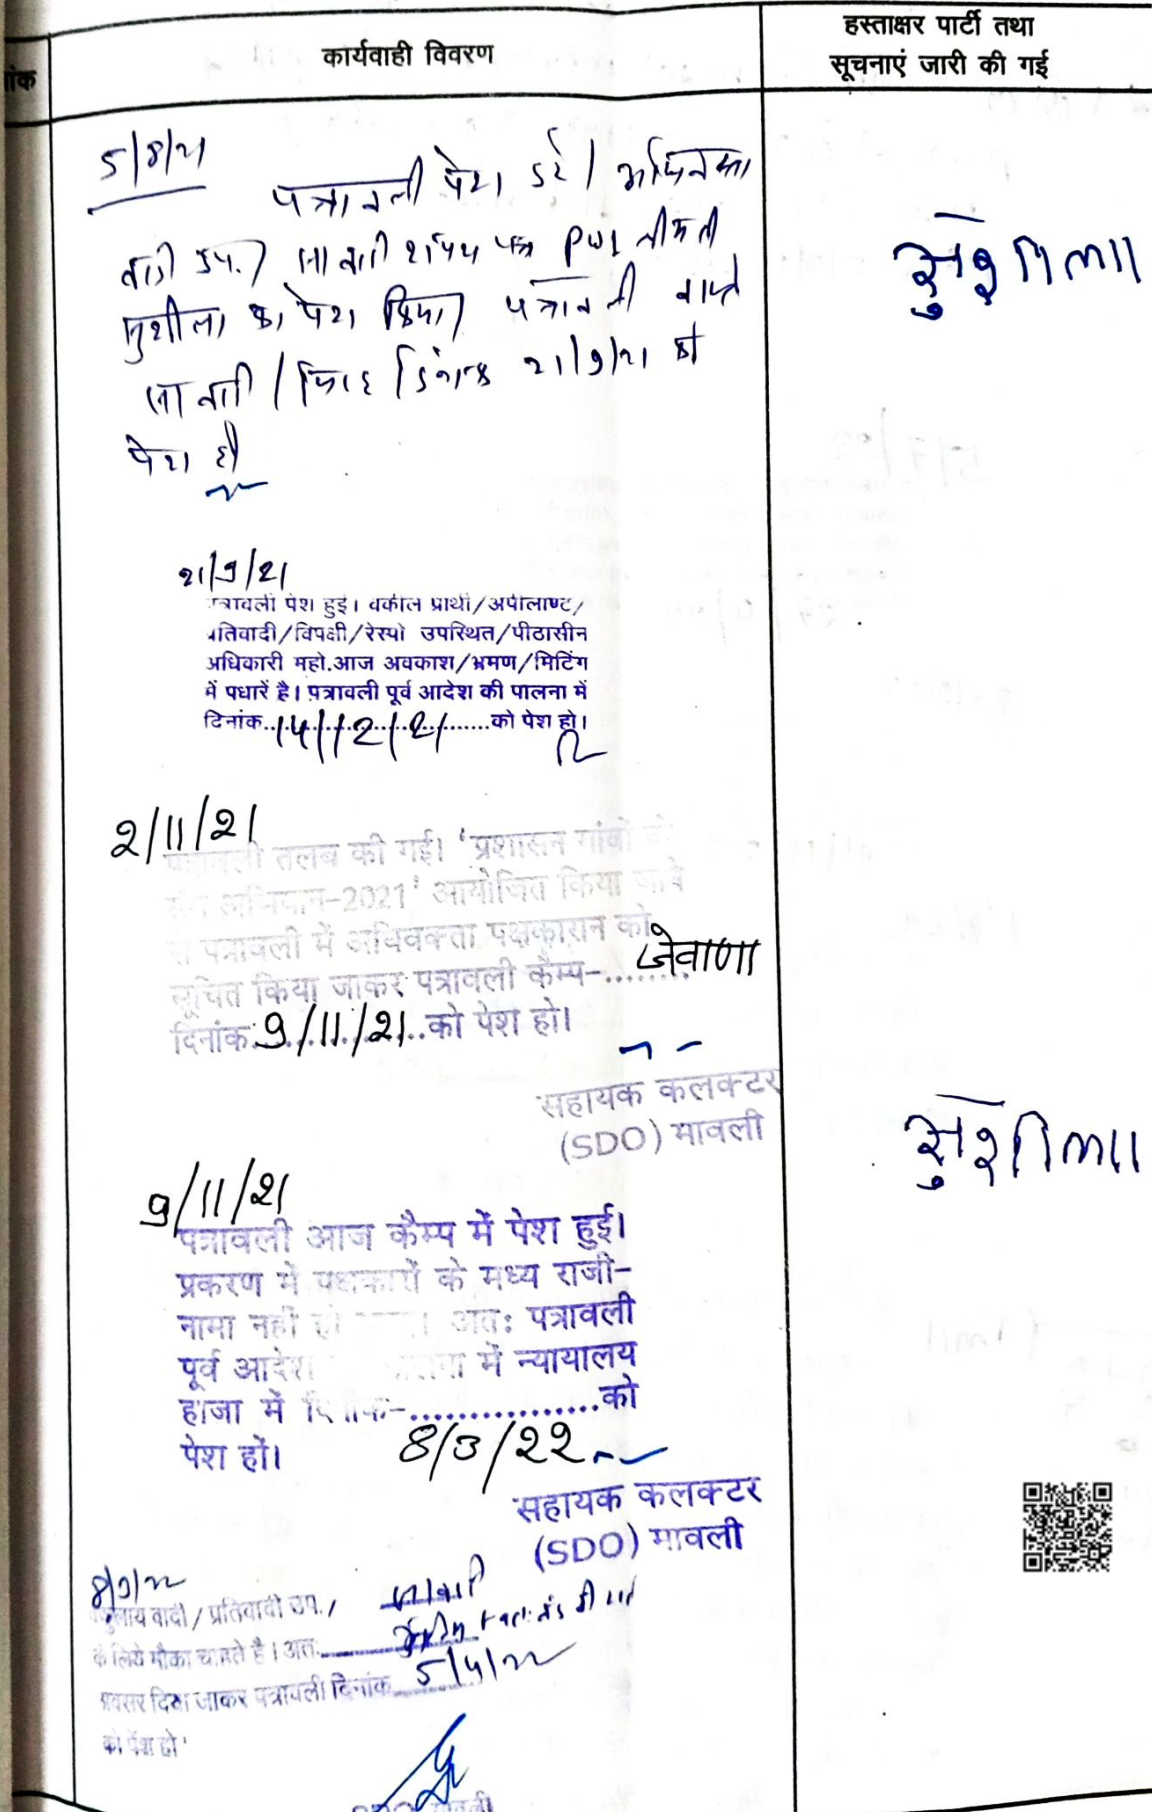 हस्ताक्षर पार्टी तथा
कार्यवाही विवरण
सूचनाएं जारी की गई
5/8/21
पत्रावली पेश
शपथ पत्र PW1
सुशीला का पेश किया पत्रावली वास्ते
दिनांक 21/9/21 को
पेश हो
सुशीला
21/9/21
पत्रावली पेश हुई। वकील प्रार्थी/अपीलाण्ट/
प्रतिवादी/विपक्षी/रेस्पो उपस्थित/पीठासीन
अधिकारी महो.आज अवकाश/भ्रमण/मिटिंग
में पधारें है। पत्रावली पूर्व आदेश की पालना में
दिनांक..14/12/21..को पेश हो।
2/11/21
पत्रावली तलब की गई। 'प्रशासन गांवों के
संग अभियान-2021' आयोजित किया जाने
से पत्रावली में अधिवक्ता पक्षकारान को
सूचित किया जाकर पत्रावली कैम्प-...जेवाणा
दिनांक:9/11/21..को पेश हो।
सहायक कलक्टर
(SDO) मावली
सुशीला
9/11/21
पत्रावली आज कैम्प में पेश हुई।
प्रकरण में पक्षकारों के मध्य राजी-
नामा नहीं हो अत: पत्रावली
पूर्व आदेश में न्यायालय
हाजा में दिनांक-................को
पेश हों। 8/3/22
सहायक कलक्टर
(SDO) मावली
वादी / प्रतिवादी उप./
के लिये मौका चाहते है। अत:
अवसर दिया जाकर पत्रावली दिनांक 5/4/22
को पेश हो
मावली